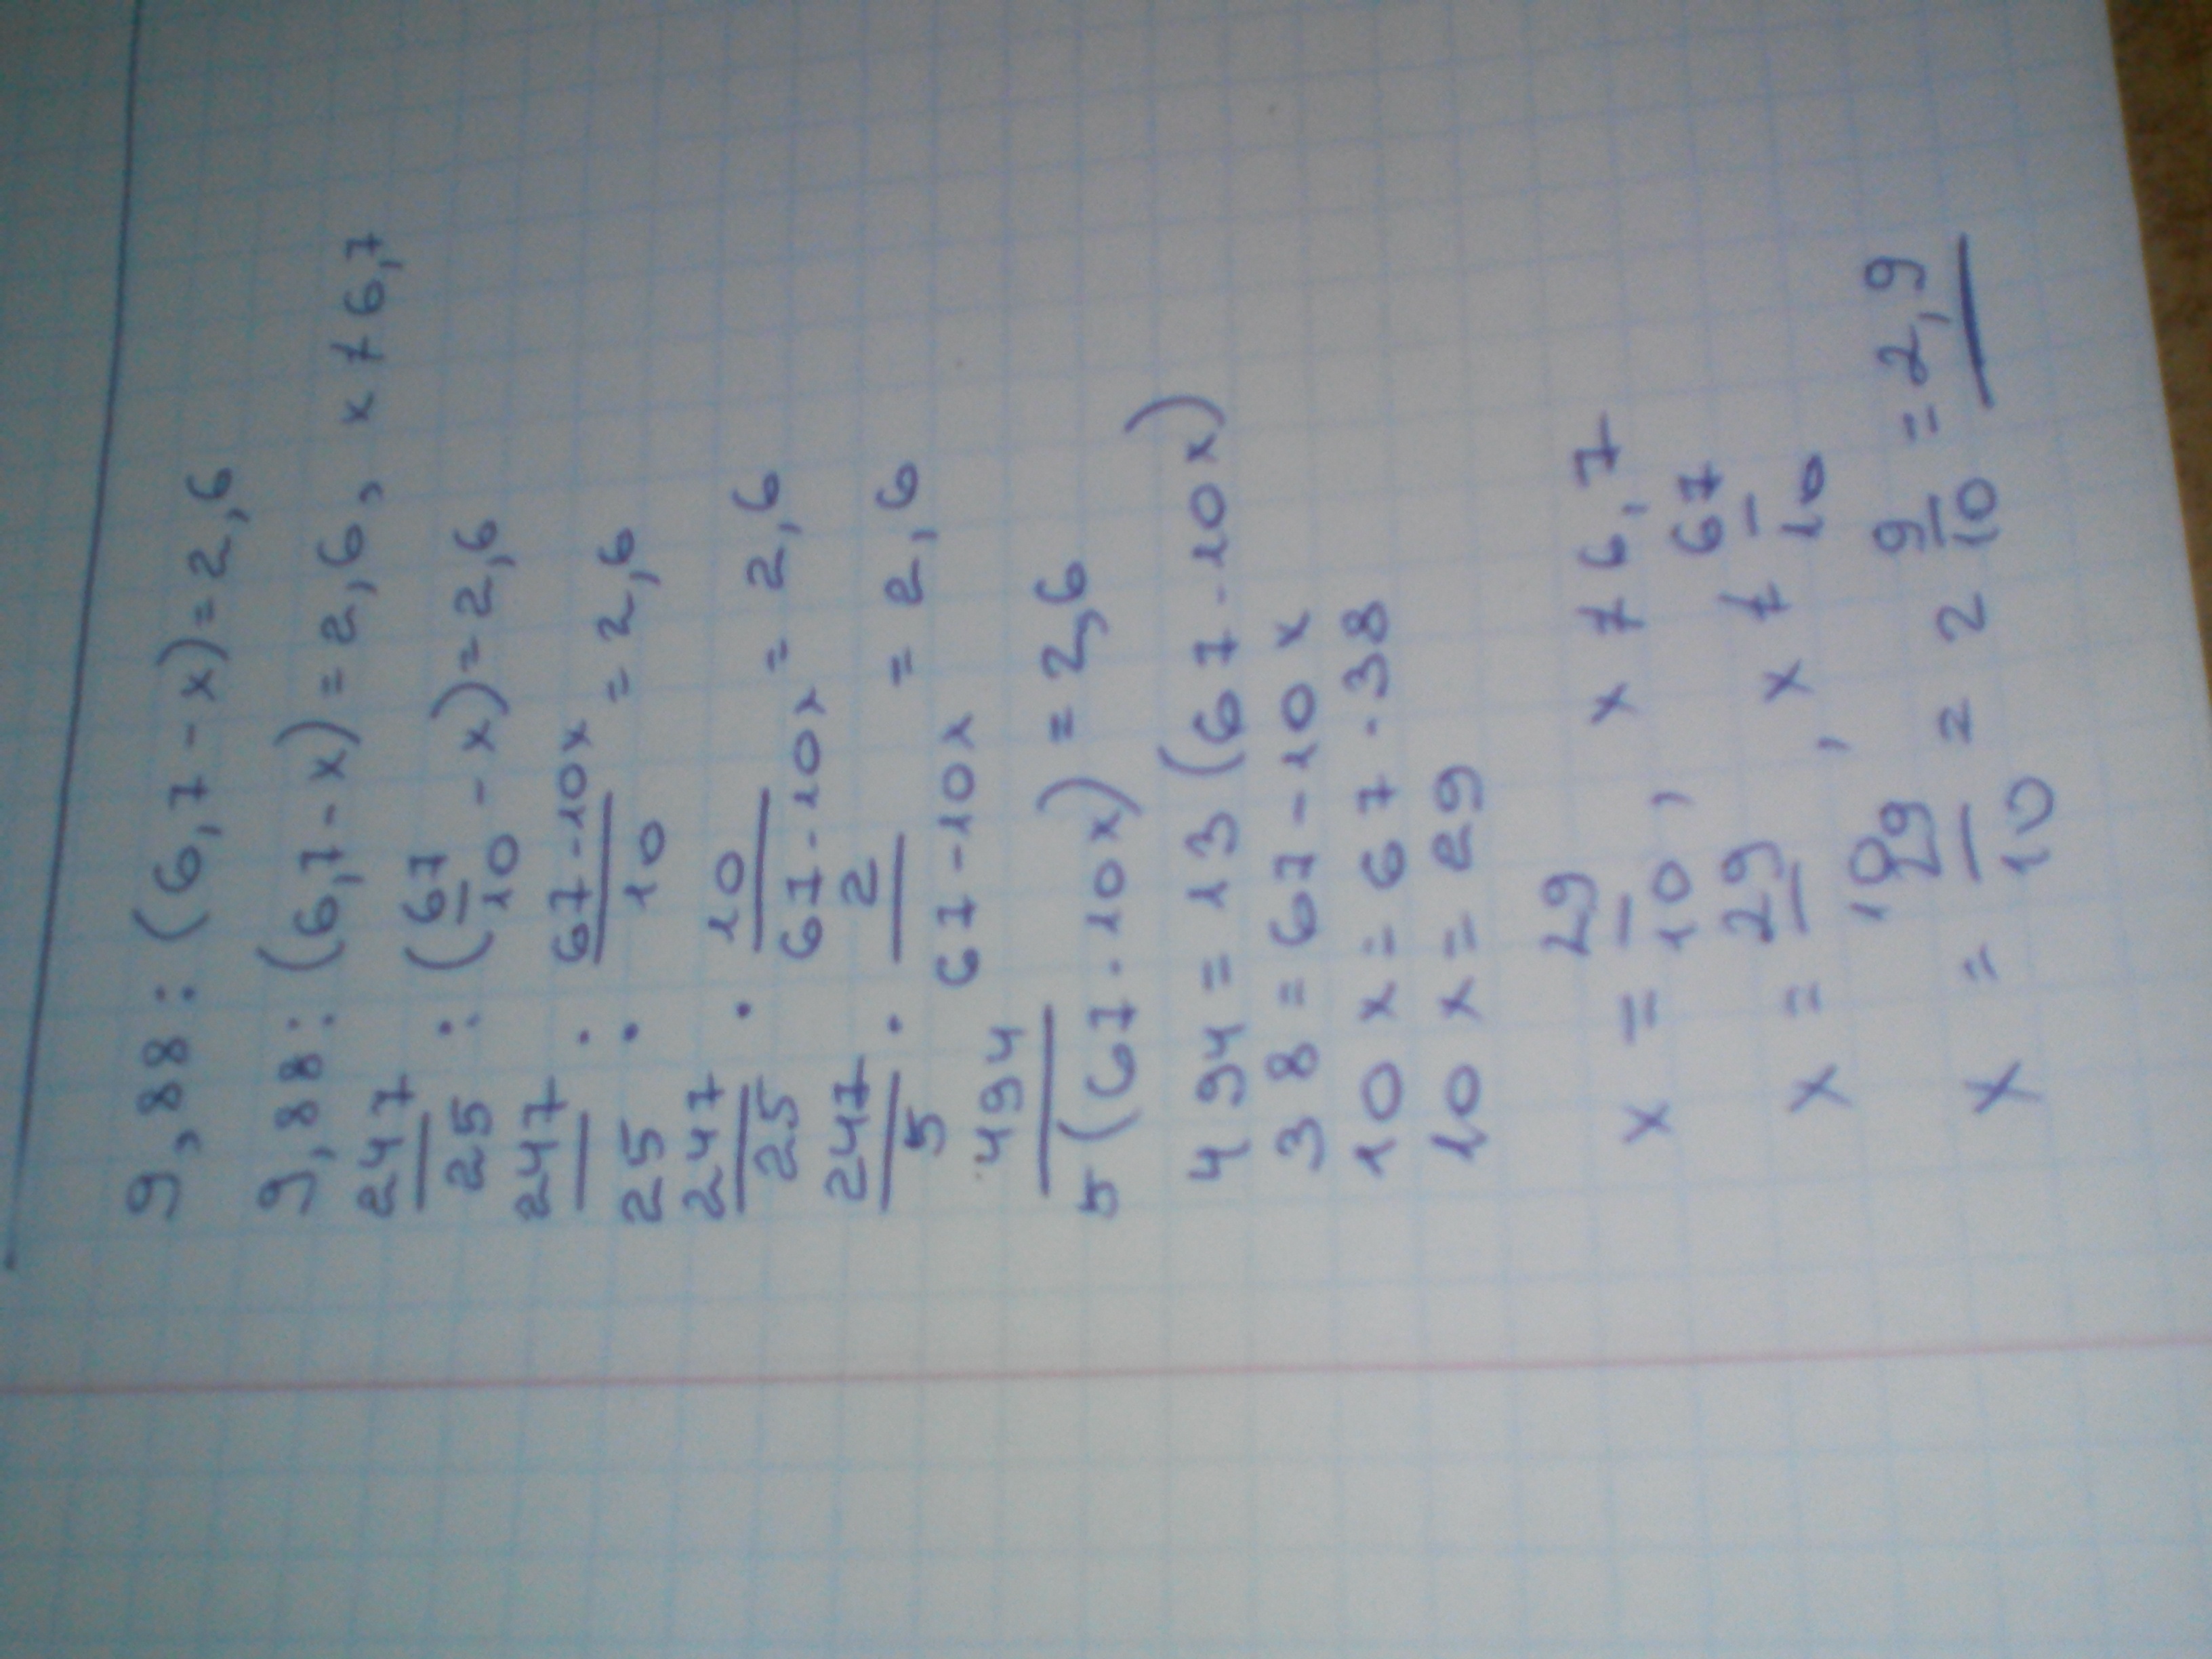 9,88:(6,7-x)=2,6
9,88:(6,7-x)=2,6, x≠6,7
247/25:(67/10-x)=2,6
247/25:67-10x/10=2,6
247/25·10/67-10x=2,6
247/5·2/67-10x=2,6
494/5(67·10x)=2,6
494=13(67-10x)
38=67-10x
10x=67·38
10x=29
x=29/10, x≠6,7
x=29/10, x≠67/10
x=29/10=2 9/10=2,9